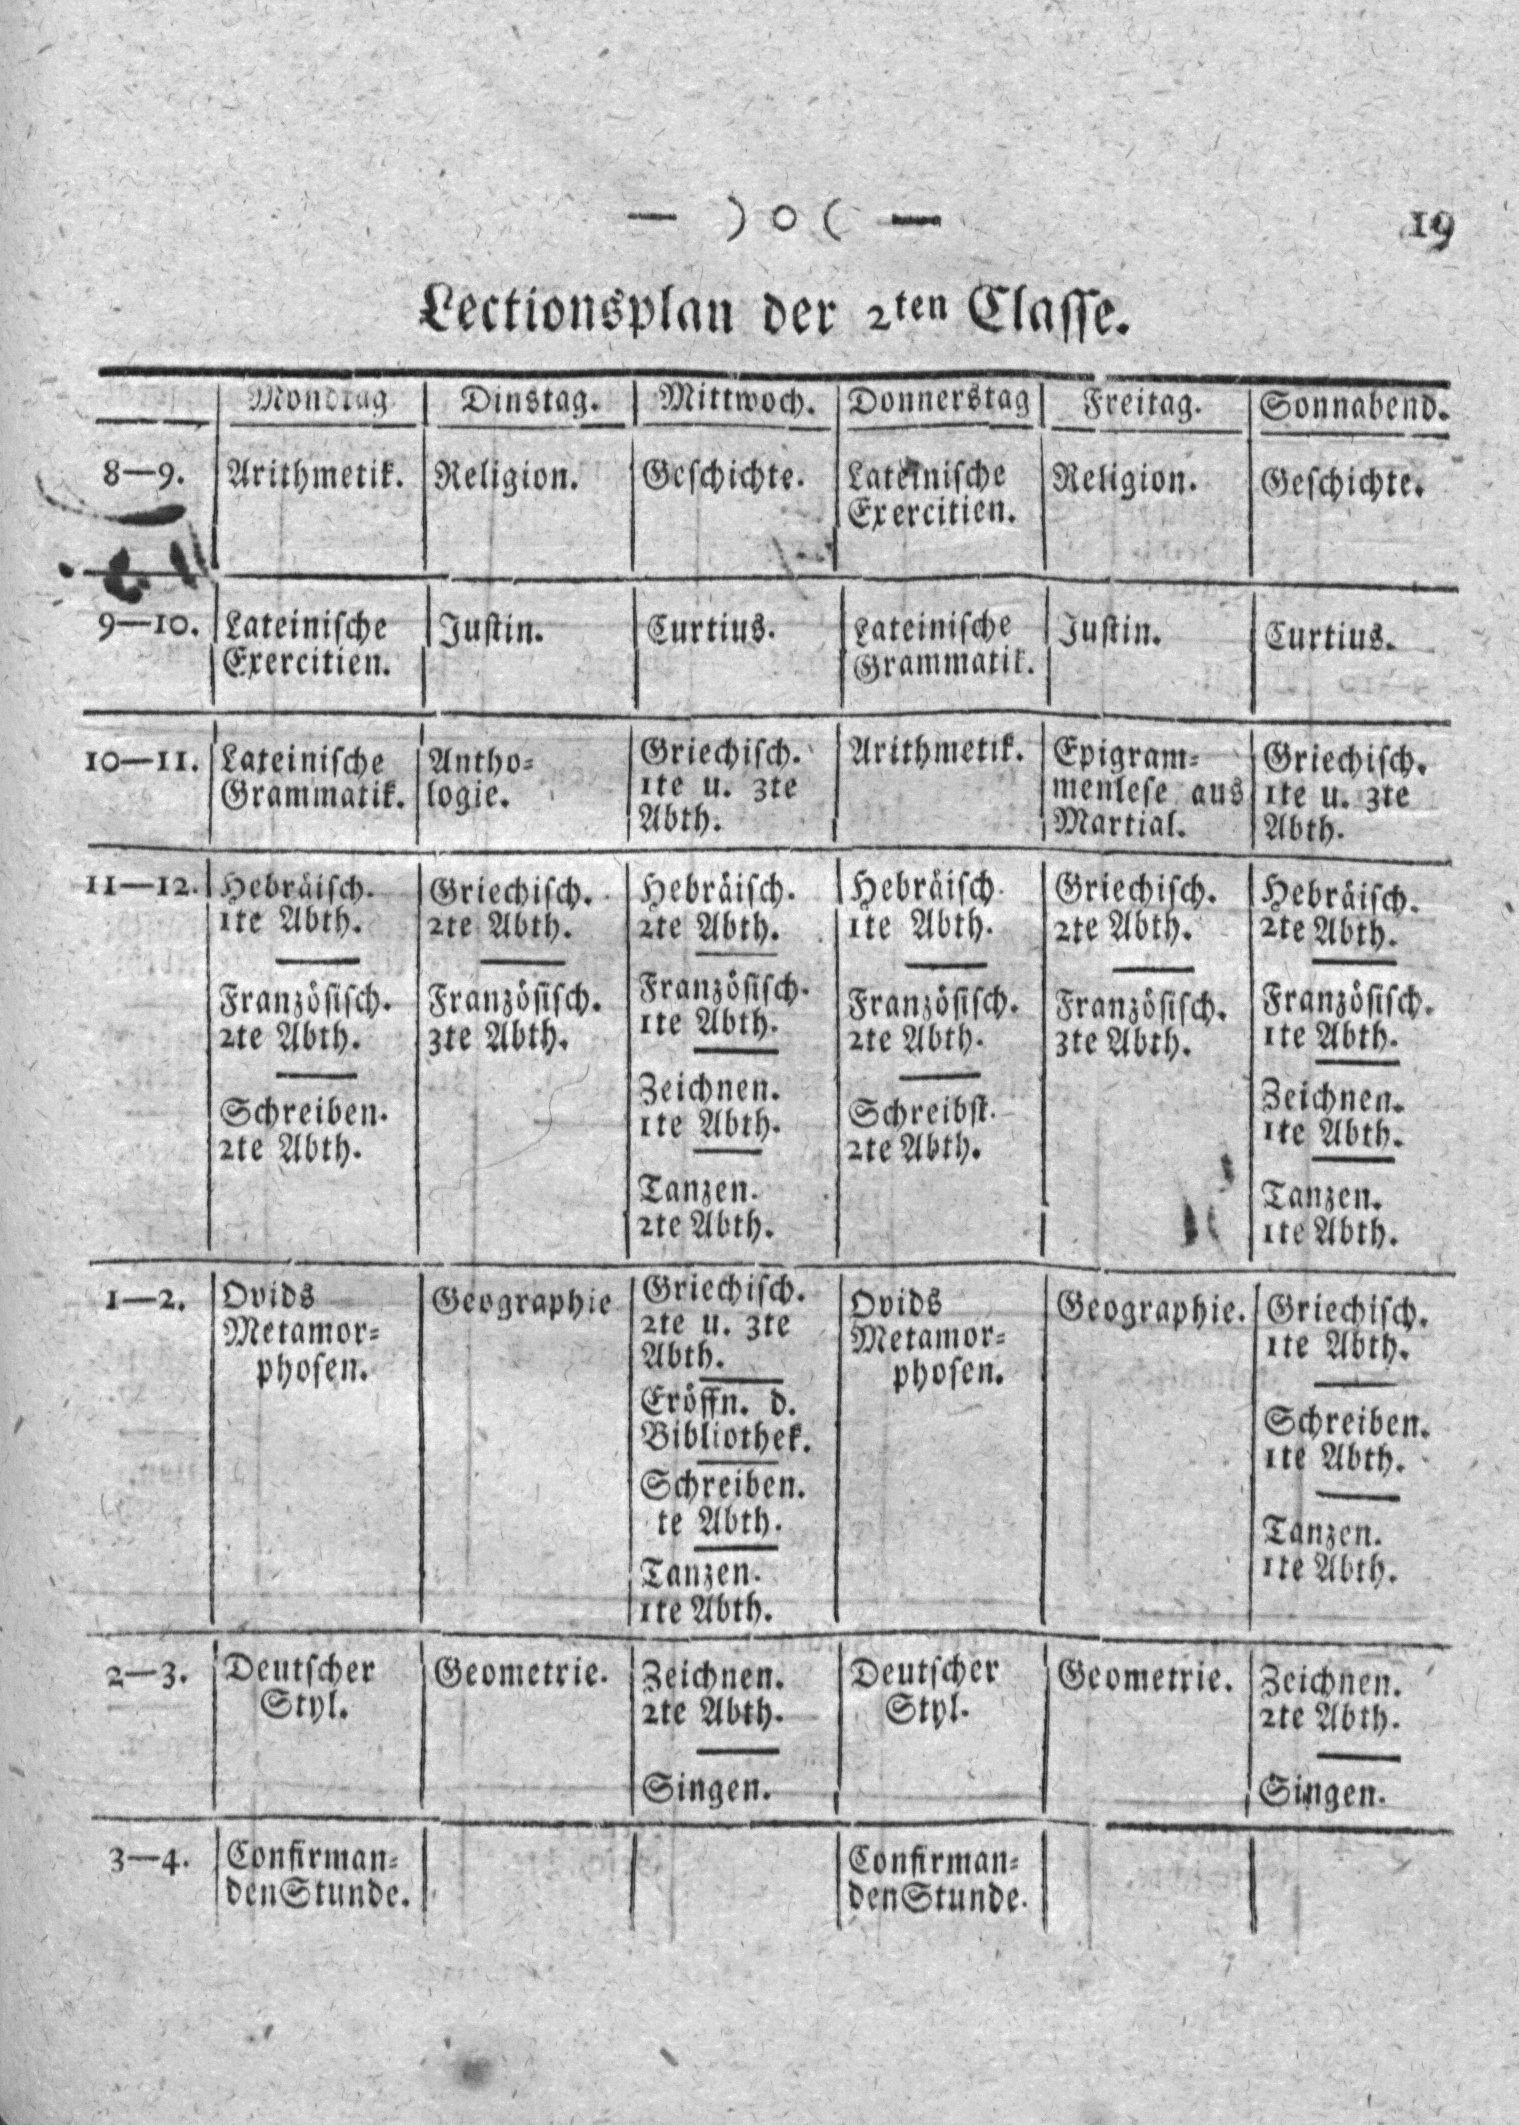 — ) o ( — 19
Lectionsplan der 2ten Classe.
Mondtag Dinstag. Mittwoch. Donnerstag Freitag. Sonnabend.
8—9. Arithmetik. Religion. Geschichte. Lateinische Religion. Geschichte.
Exercitien.
9—10. Lateinische Justin. Curtius. Lateinische Justin. Curtius.
Exercitien. Grammatik.
10—11. Lateinische Antho= Griechisch. Arithmetik. Epigram= Griechisch.
Grammatik. logie. 1te u. 3te menlese aus 1te u. 3te
Abth. Martial. Abth.
11—12. Hebräisch. Griechisch. Hebräisch. Hebräisch. Griechisch. Hebräisch.
1te Abth. 2te Abth. 2te Abth. 1te Abth. 2te Abth. 2te Abth.
Französisch. Französisch. Französisch. Französisch. Französisch. Französisch.
2te Abth. 3te Abth. 1te Abth. 2te Abth. 3te Abth. 1te Abth.
Schreiben. Zeichnen. Schreibst. Zeichnen.
2te Abth. 1te Abth. 2te Abth. 1te Abth.
Tanzen. Tanzen.
2te Abth. 1te Abth.
1—2. Ovids Geographie Griechisch. Ovids Geographie. Griechisch.
Metamor= 2te u. 3te Metamor= 1te Abth.
phosen. Abth. phosen.
Eröffn. d. Schreiben.
Bibliothek. 1te Abth.
Schreiben. Tanzen.
te Abth. 1te Abth.
Tanzen.
1te Abth.
2—3. Deutscher Geometrie. Zeichnen. Deutscher Geometrie. Zeichnen.
Styl. 2te Abth. Styl. 2te Abth.
Singen. Singen.
3—4. Confirman= Confirman=
denStunde. denStunde.